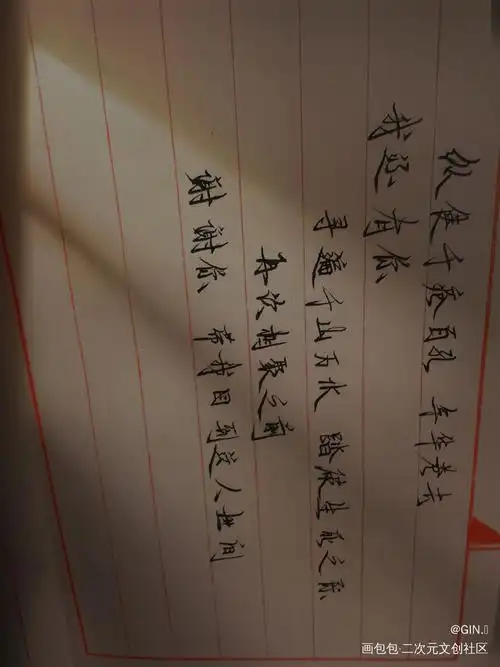 纵使千疮百孔 年华老去
我还有你
寻遍千山万水 踏破生死之际
再次相聚之前
谢谢你 带我回到这人世间
@GIN.
画包包·二次元文创社区